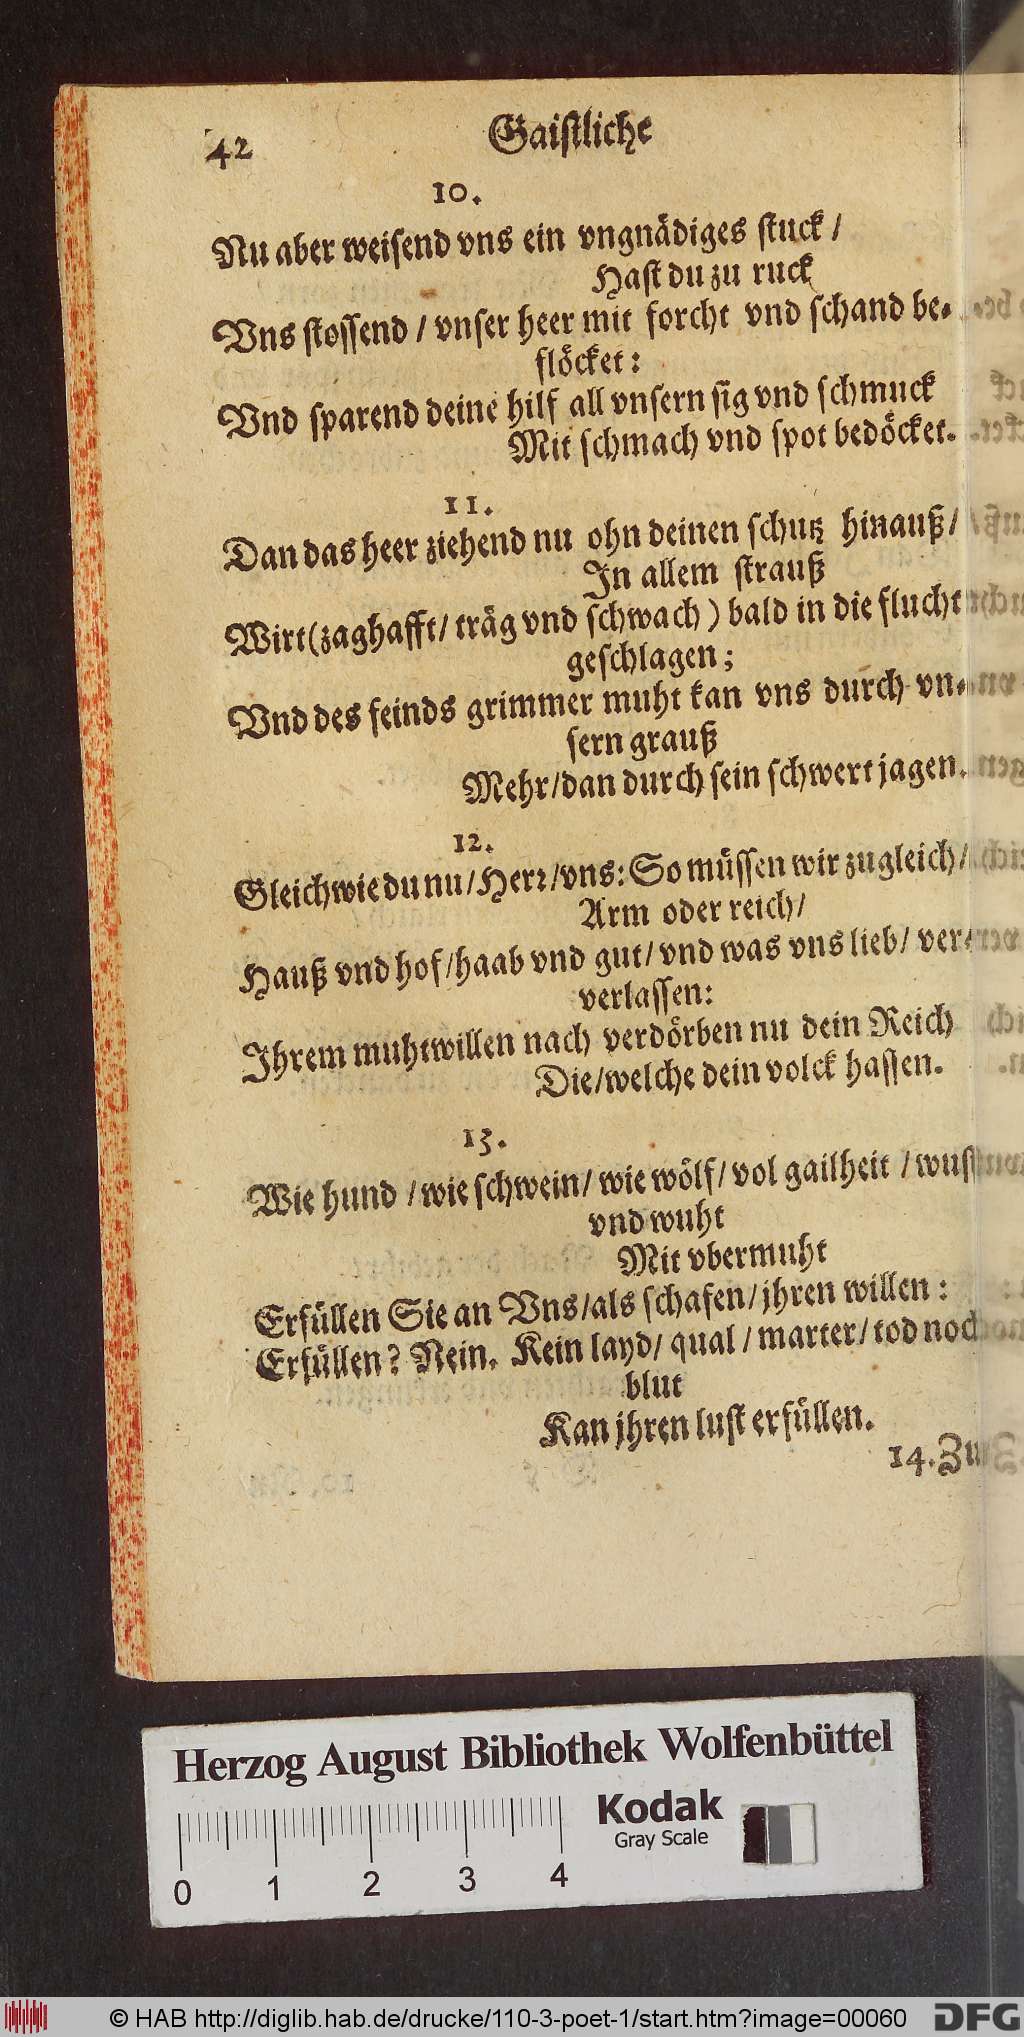 42
Gaistliche
10.
Nu aber weisend vns ein vngnädiges stuck /
Hast du zu ruck
Vns stossend / vnser heer mit forcht vnd schand be-
flöcket:
Vnd sparend deine hilf all vnsern sig vnd schmuck
Mit schmach vnd spot bedöcket.
11.
Dan das heer ziehend nu ohn deinen schutz hinauß /
In allem strauß
Wirt (zaghafft / träg vnd schwach ) bald in die flucht
geschlagen;
Vnd des feinds grimmer muht kan vns durch vn-
sern grauß
Mehr / dan durch sein schwert jagen.
12.
Gleich wie du nu / Herr / vns: So müssen wir zugleich /
Arm oder reich /
Hauß vnd hof / haab vnd gut / vnd was vns lieb / ver-
verlassen:
Ihrem muhtwillen nach verdörben nu dein Reich
Die / welche dein volck hassen.
13.
Wie hund / wie schwein / wie wölf / vol gailheit / wust
vnd wuht
Mit vbermuht
Erfüllen Sie an Vns / als schafen / jhren willen :
Erfüllen? Nein. Kein layd / qual / marter / tod noch
blut
Kan jhren lust erfüllen.
14. Zu
Herzog August Bibliothek Wolfenbüttel
Kodak
Gray Scale
0 1 2 3 4
© HAB http://diglib.hab.de/drucke/110-3-poet-1/start.htm?image=00060
DFG